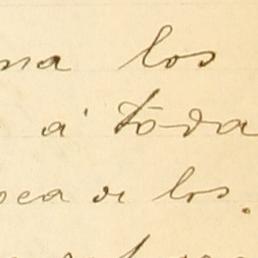 na los
á toda
oca de los.